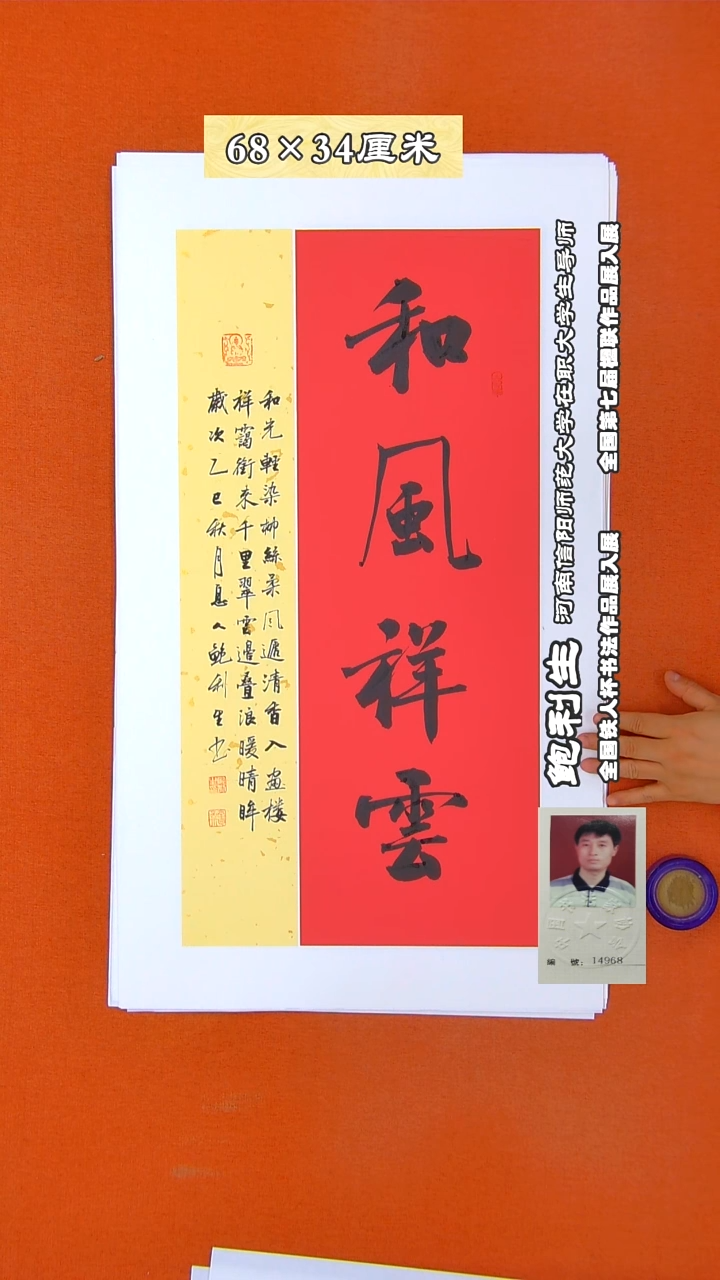 68×34厘米
和風祥雲
和光輕染柳絲柔風遞清香入画楼
祥靄銜来千里翠雲邊叠浪暖晴眸
歲次乙巳秋月息人鲍利生书
全国第七届楹联作品展入展
全国铁人杯书法作品展入展
河南信阳师范大学在职大学生导师
鲍利生
編 號：14968